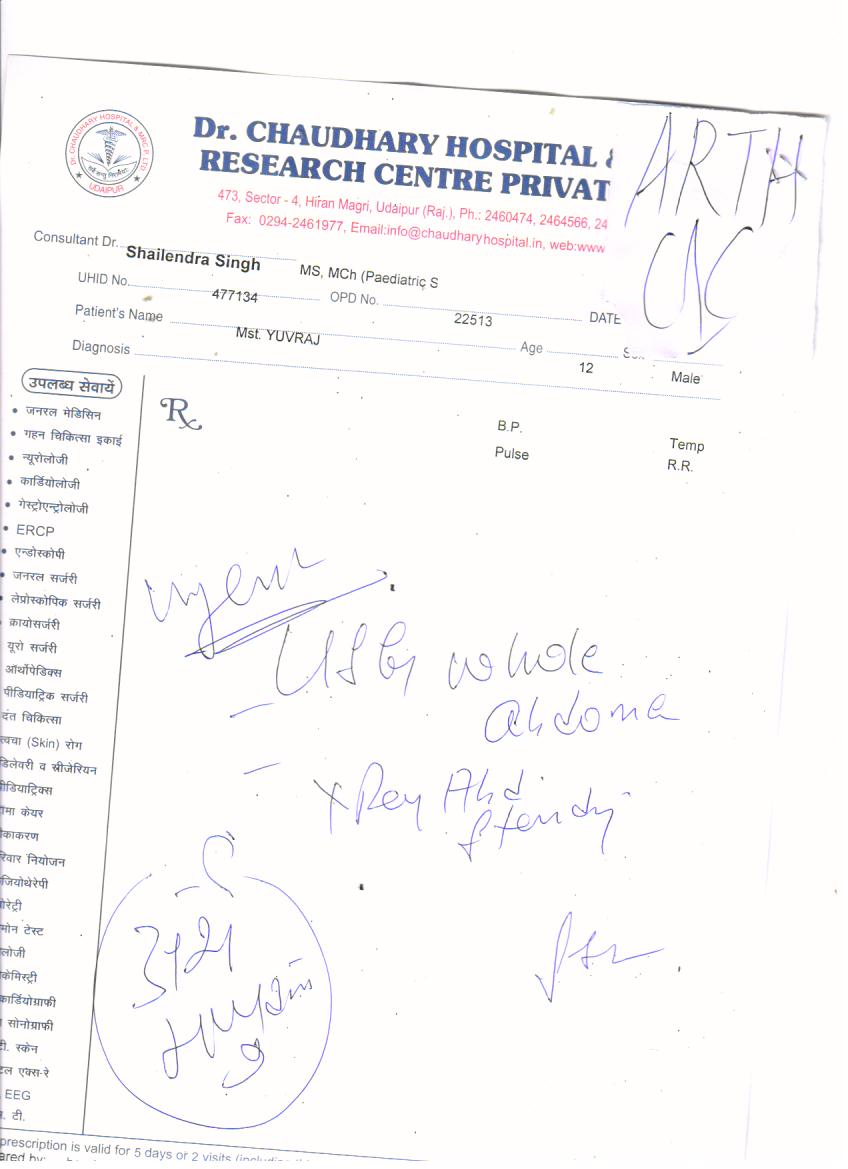 DR. CHAUDHARY HOSPITAL & MRC P. LTD
UDAIPUR
Dr. CHAUDHARY HOSPITAL &
RESEARCH CENTRE PRIVAT
473, Sector - 4, Hiran Magri, Udaipur (Raj.), Ph.: 2460474, 2464566, 24
Fax: 0294-2461977, Email:info@chaudharyhospital.in, web:www
ARTH
Consultant Dr. Shailendra Singh MS, MCh (Paediatric S
UHID No. 477134 OPD No. 22513 DATE
Patient's Name Mst. YUVRAJ Age 12 Sex Male
Diagnosis
Rx
B.P. Temp
Pulse R.R.
उपलब्ध सेवायें
• जनरल मेडिसिन
• गहन चिकित्सा इकाई
• न्यूरोलोजी
• कार्डियोलोजी
• गेस्ट्रोएन्ट्रोलोजी
• ERCP
• एन्डोस्कोपी
• जनरल सर्जरी
• लेप्रोस्कोपिक सर्जरी
क्रायोसर्जरी
यूरो सर्जरी
ऑर्थोपेडिक्स
पीडियाट्रिक सर्जरी
दंत चिकित्सा
त्वचा (Skin) रोग
डिलेवरी व सीजेरियन
ीडियाट्रिक्स
ामा केयर
ीकाकरण
रिवार नियोजन
जियोथेरेपी
ोरेट्री
मोन टेस्ट
लोजी
केमिस्ट्री
कार्डियोग्राफी
सोनोग्राफी
टी. स्केन
टल एक्स-रे
EEG
. टी.
Urgent
USG whole
Abdomen
X Ray Abd
Standing
prescription is valid for 5 days or 2 visits (including
ared by: